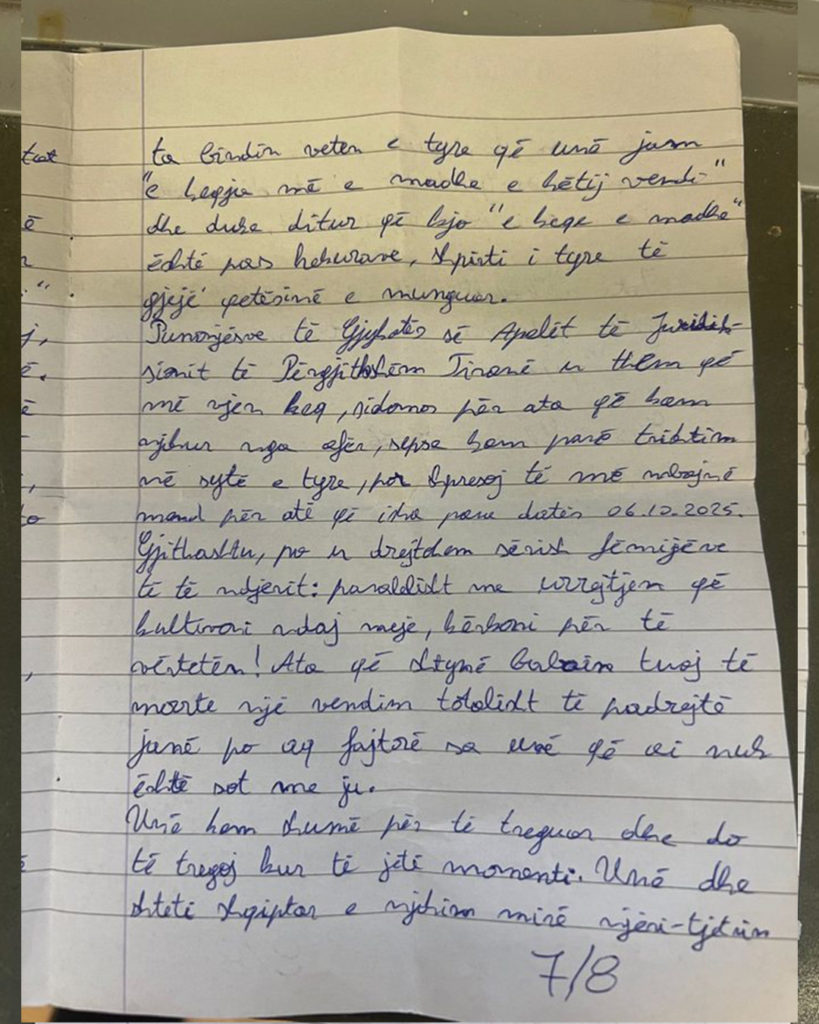 tuat
ta bindin veten e tyre që unë jam
"e keqja më e madhe e këtij vendi"
dhe duke ditur që kjo "e keqe e madhe"
është pas hekurave, shpirti i tyre të
gjejë qetësinë e munguar.
Punonjësve të Gjykatës së Apelit të Juridik-
sionit të Përgjithshëm Tiranë u them që
më vjen keq, sidomos për ata që kam
njohur nga afër, sepse kam parë trishtim
në sytë e tyre, por shpresoj të më mbajnë
mend për atë që isha para datës 06.10.2025.
Gjithashtu, po u drejtohem sërish fëmijëve
të të ndjerit: paralelisht me urrejtjen që
kultivoni ndaj meje, kërkoni për të
vërtetën! Ata që shtynë babain tuaj të
marrte një vendim totalisht të padrejtë
janë po aq fajtorë sa unë që ai nuk
është sot me ju.
Unë kam shumë për të treguar dhe do
të tregoj kur të jetë momenti. Unë dhe
shteti shqiptar e njohim mirë njëri-tjetrin
7/8